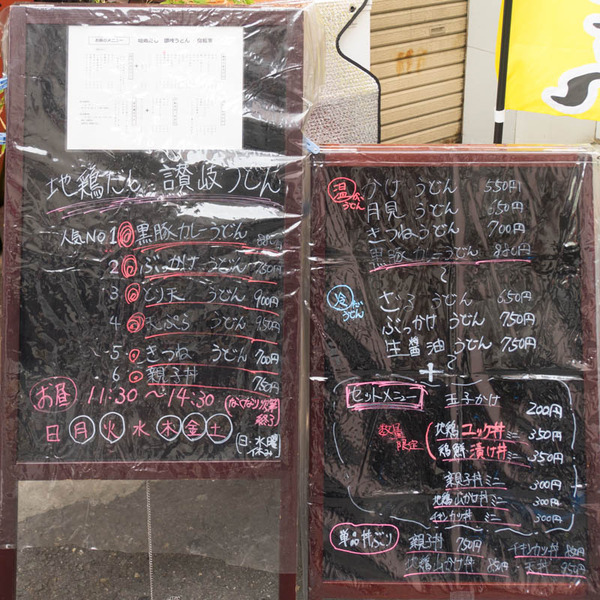 地鶏だし 讃岐うどん
人気NO 1 黒豚カレーうどん 880円
2 ぶっかけうどん 750円
3 とり天 うどん 900円
4 天ぷら うどん 950円
5 きつね うどん 700円
6 親子丼 750円
お昼 11:30 〜 14:30 なくなり次第終了
日 月 火 水 木 金 土
日・水曜休み
温かいうどん
かけ うどん 550円
月見 うどん 650円
きつねうどん 700円
黒豚カレーうどん 880円
〜
冷たいうどん
ざる うどん 650円
ぶっかけ うどん 750円
生醤油 うどん 750円
〜
+
セットメニュー 玉子かけ 200円
数量限定
地鶏 ユッケ丼 ミニ 350円
漬け丼 ミニ 350円
親子丼 ミニ 300円
地鶏山かけ丼 ミニ 300円
チキンカツ丼 ミニ 300円
単品丼ぶり
親子丼 750円 チキンカツ丼
地鶏山かけ丼 850円 天丼 950円